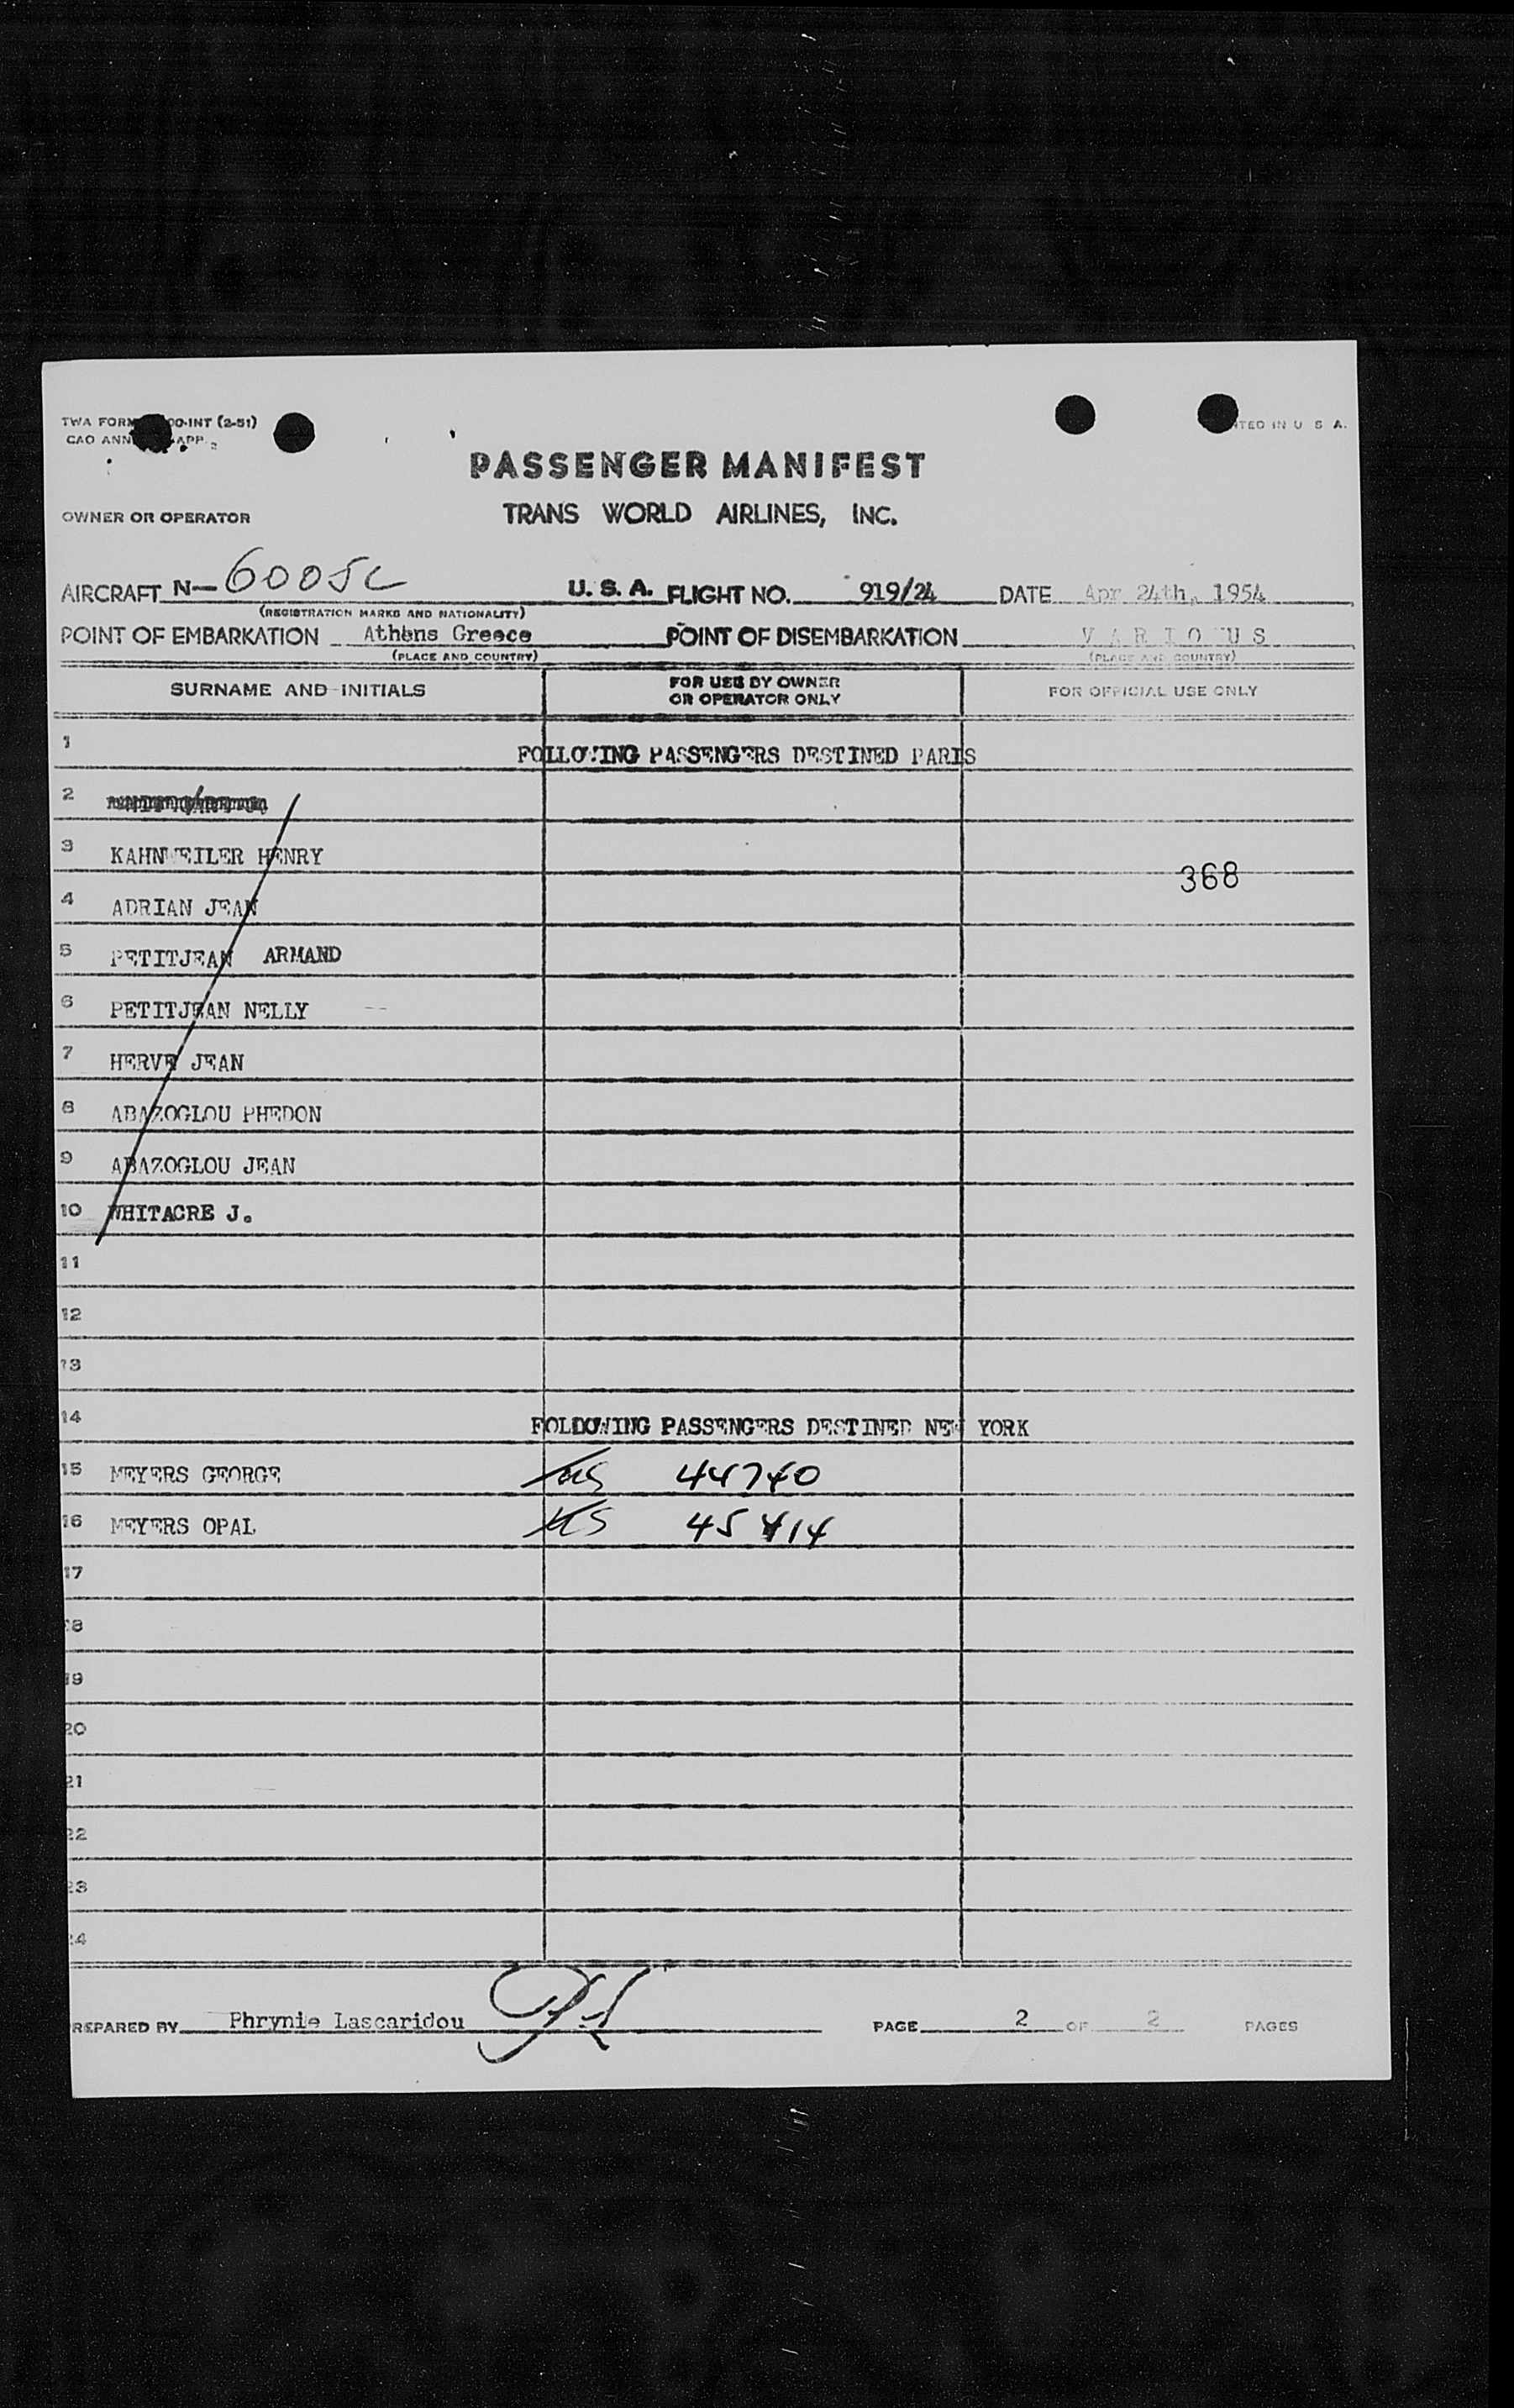 TWA FORM 00-INT (2-51)
CAO ANN APP. 2
TED IN U S A.
PASSENGER MANIFEST
OWNER OR OPERATOR TRANS WORLD AIRLINES, INC.
AIRCRAFT N- 6005C U. S. A. FLIGHT NO. 919/24 DATE Apr 24th, 1954
(REGISTRATION MARKS AND NATIONALITY)
POINT OF EMBARKATION Athens Greece POINT OF DISEMBARKATION V A R I O U S
(PLACE AND COUNTRY) (PLACE AND COUNTRY)
SURNAME AND INITIALS FOR USE BY OWNER OR OPERATOR ONLY FOR OFFICIAL USE ONLY
1 FOLLOWING PASSENGERS DESTINED PARIS
2
3 KAHNWEILER HENRY
368
4 ADRIAN JEAN
5 PETITJEAN ARMAND
6 PETITJEAN NELLY
7 HERVE JEAN
8 ABAZOGLOU PHEDON
9 ABAZOGLOU JEAN
10 WHITACRE J.
11
12
13
14 FOLLOWING PASSENGERS DESTINED NEW YORK
15 MEYERS GEORGE US 44740
16 MEYERS OPAL US 45414
17
18
19
20
21
22
23
24
PREPARED BY Phrynie Lascaridou PAGE 2 OF 2 PAGES